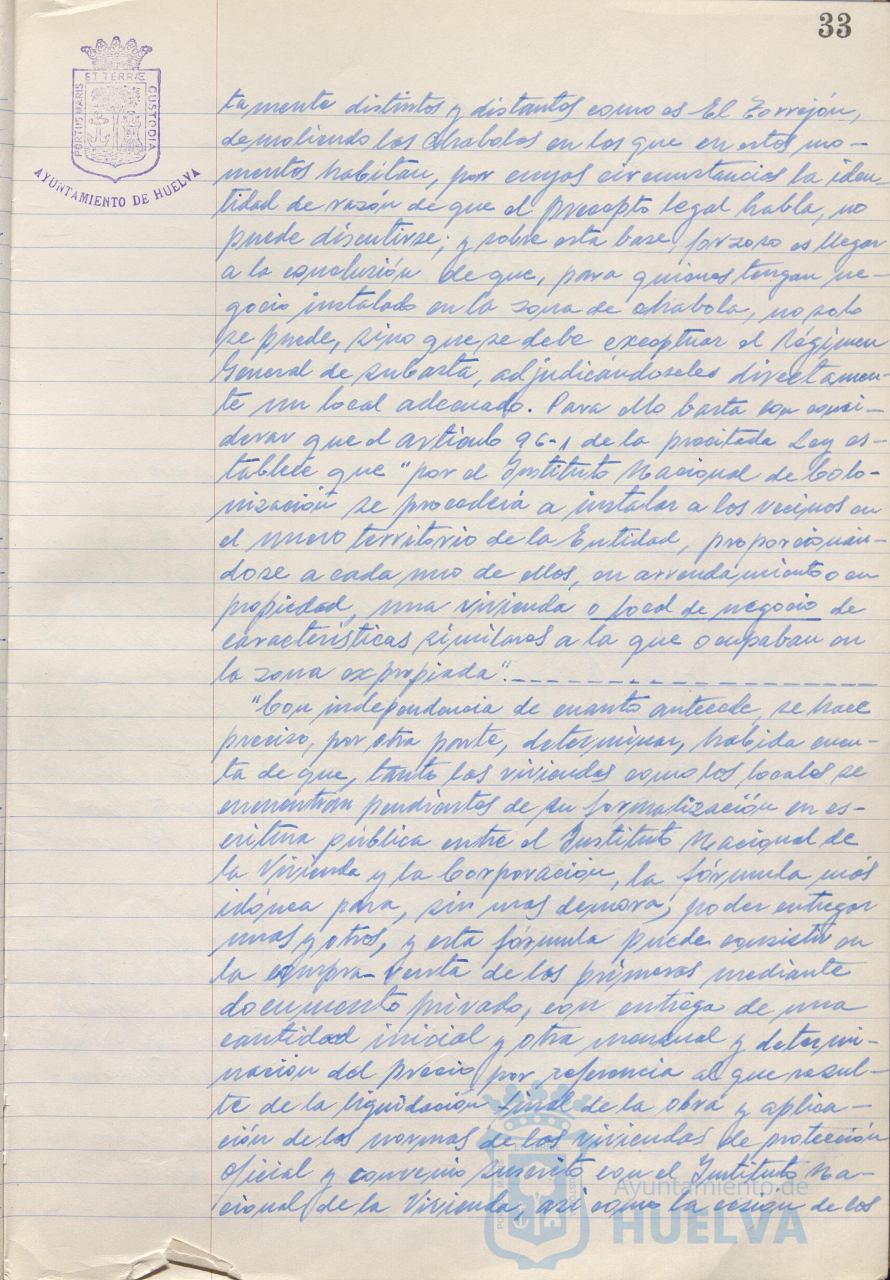 33
PORTUS MARIS
ET TERRÆ
CUSTODIA
AYUNTAMIENTO DE HUELVA
tamente distintos y distantes como es El Torrejón,
demoliendo las chabolas en las que en estos mo-
mentos habitan, por cuyas circunstancias la iden-
tidad de razón de que el precepto legal habla, no
puede discutirse; y sobre esta base, forzoso es llegar
a la conclusión de que, para quienes tengan ne-
gocio instalado en la zona de chabola, no solo
se puede, sino que se debe exceptuar el Régimen
General de subasta, adjudicándoseles directamen-
te un local adecuado. Para ello basta con consi-
derar que el artículo 96-1 de la precitada Ley es-
tablece que "por el Instituto Nacional de Colo-
nización se procederá a instalar a los vecinos en
el nuevo territorio de la Entidad, proporcionán-
dose a cada uno de ellos, en arrendamiento o en
propiedad, una vivienda o local de negocio de
características similares a la que ocupaban en
la zona expropiada".
"Con independencia de cuanto antecede, se hace
preciso, por otra parte, determinar, habida cuen-
ta de que, tanto las viviendas como los locales se
encuentran pendientes de su formalización en es-
critura pública entre el Instituto Nacional de
la Vivienda y la Corporación, la fórmula más
idónea para, sin mas demora, poder entregar
unas y otros, y esta fórmula puede consistir en
la compra-venta de las primeras mediante
documento privado, con entrega de una
cantidad inicial y otra mensual y determi-
nación del precio por referencia al que resul-
te de la liquidación final de la obra y aplica-
ción de las normas de las viviendas de protección
oficial y convenio suscrito con el Instituto Na-
cional de la Vivienda, así como la cesión de los
Ayuntamiento de
HUELVA